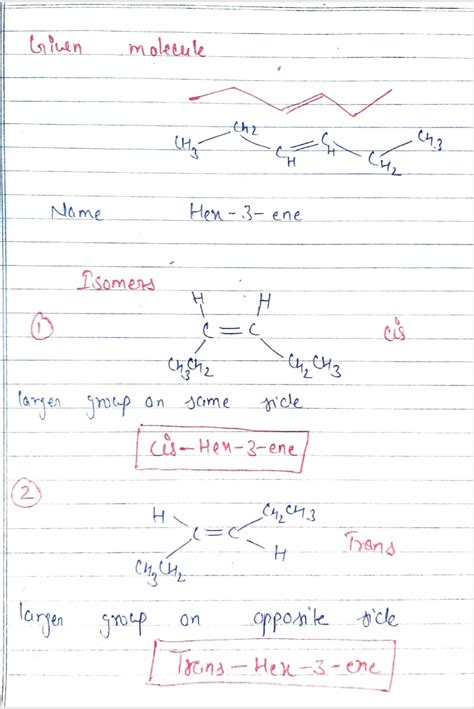 Given molecule
CH2 CH3
CH3 CH = CH CH2
Name Hex-3-ene
Isomers
H H
① C = C cis
CH3CH2 CH2CH3
larger group on same side
cis-Hex-3-ene
②
H CH2CH3
C = C Trans
CH3CH2 H
larger group on opposite side
Trans-Hex-3-ene